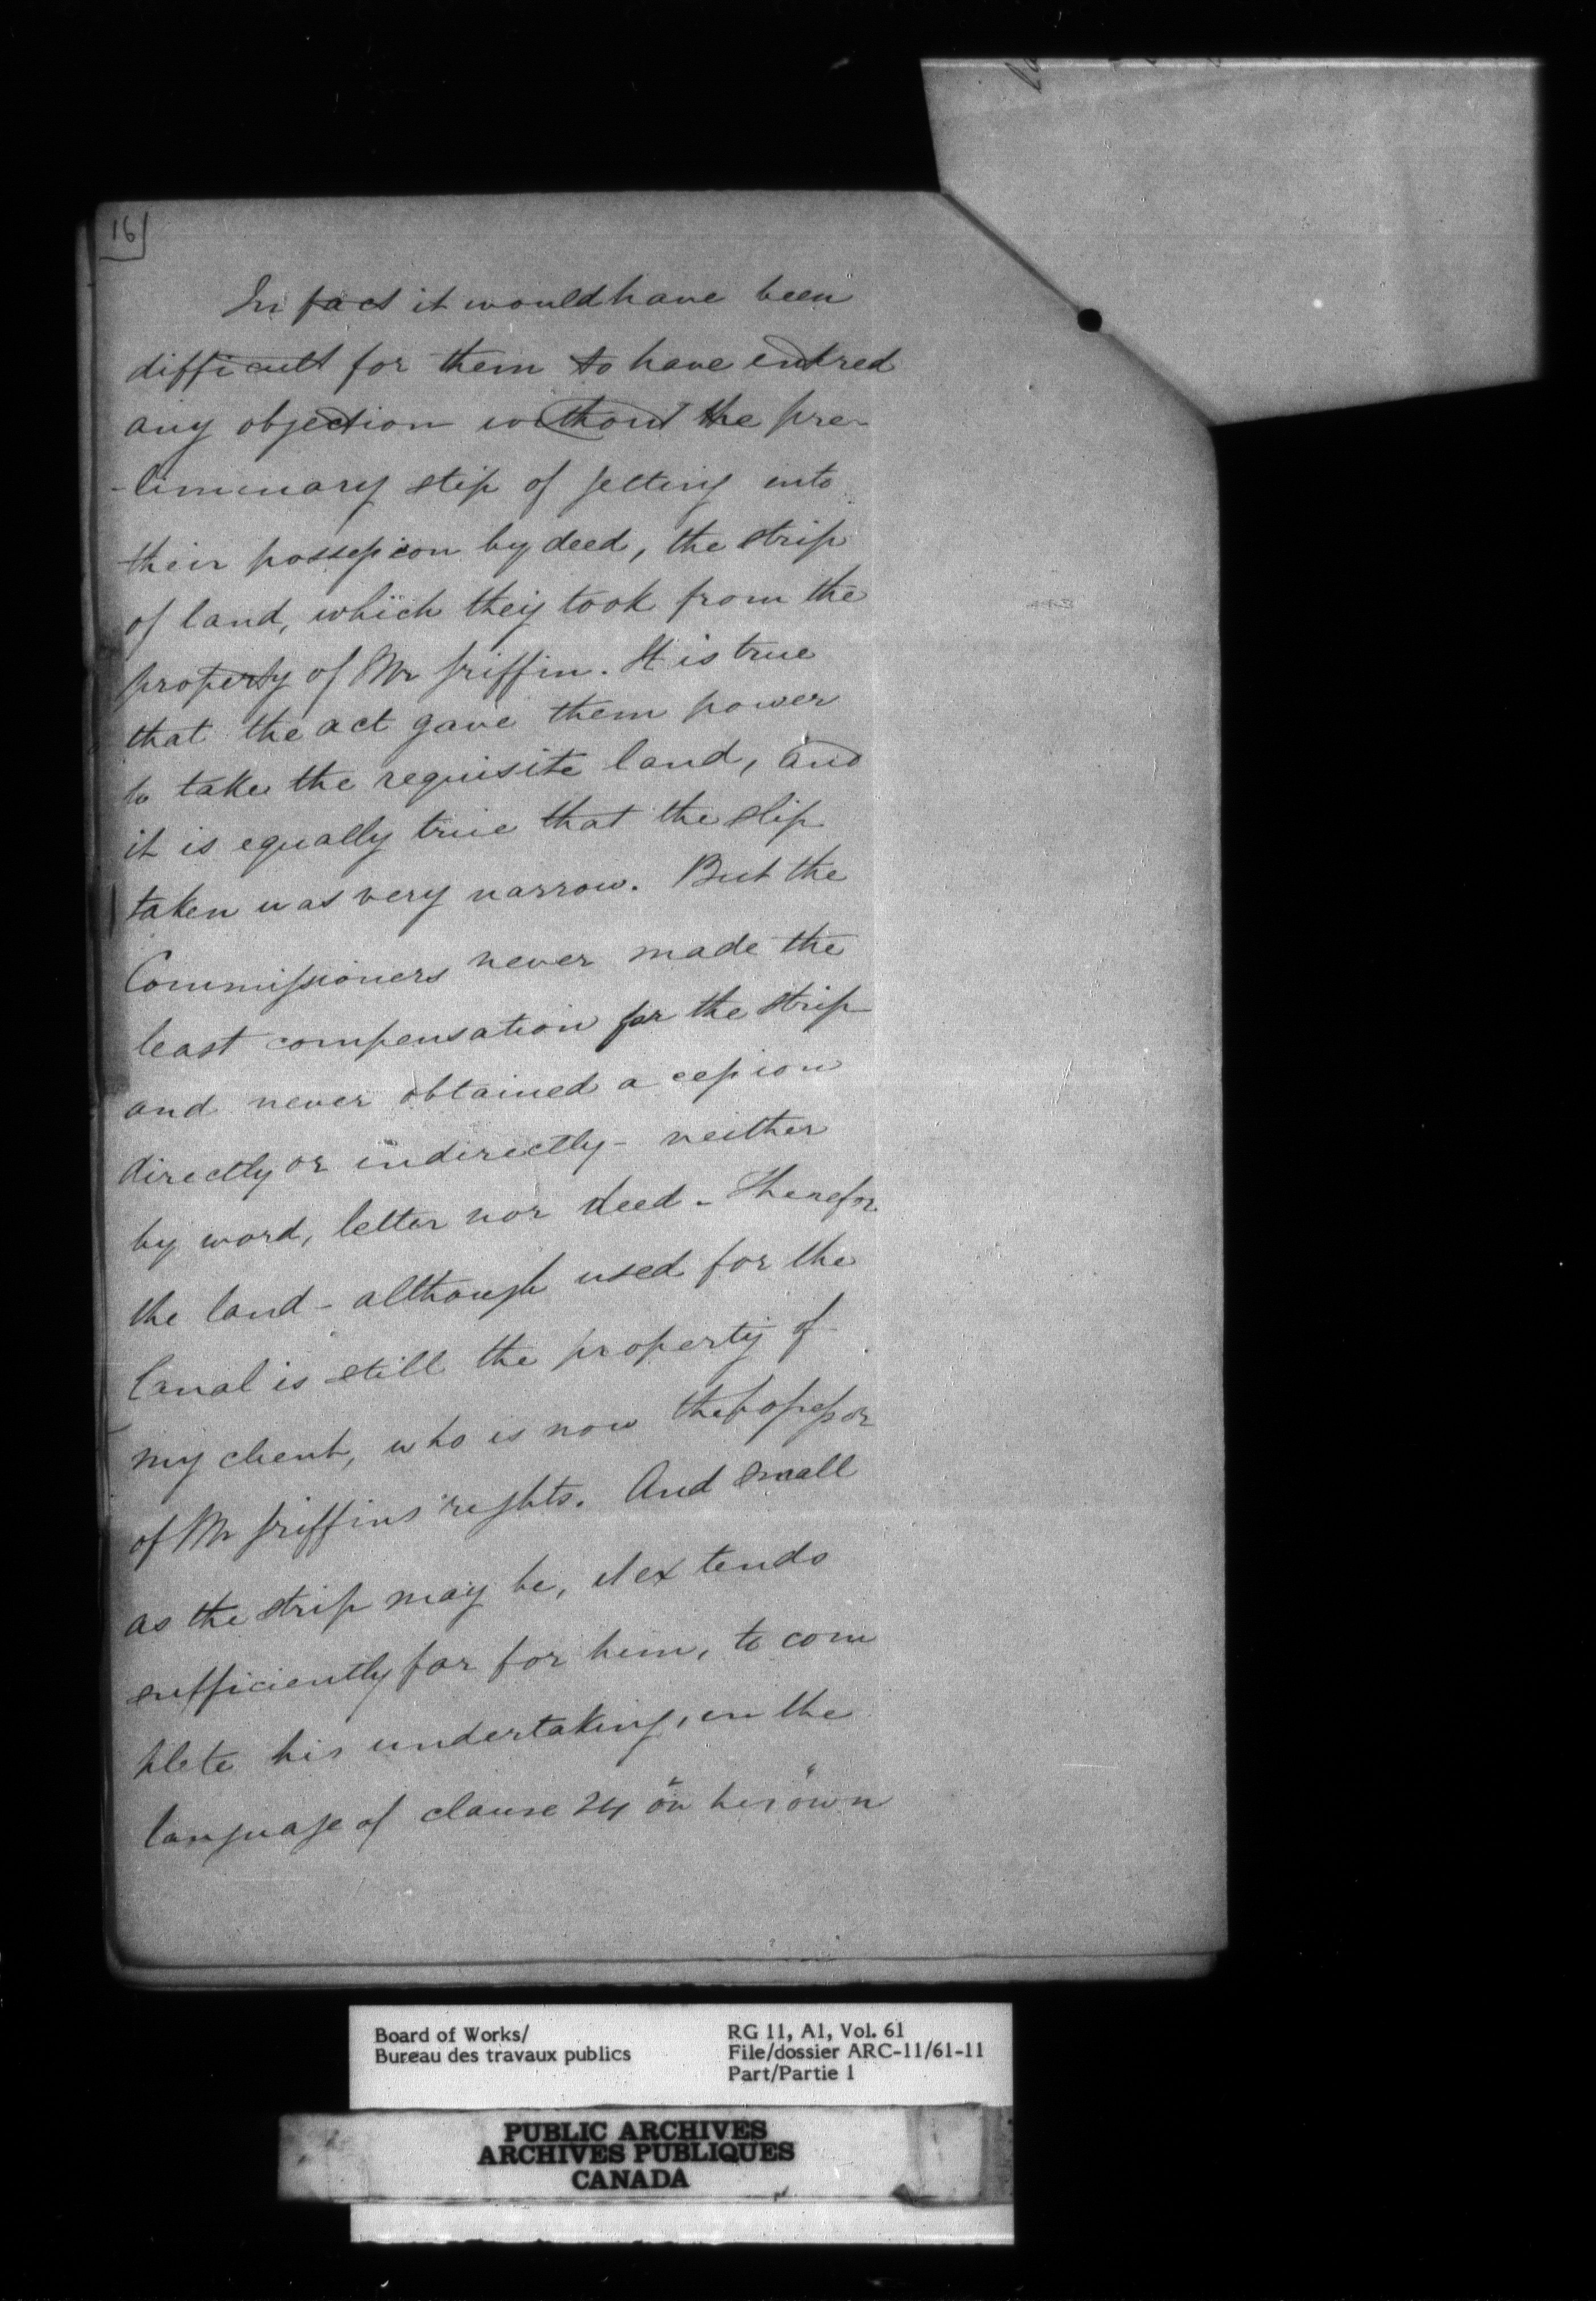 16
In fact it would have been
difficult for them to have entred
any objection without the pre-
-liminary step of getting into
their possession by deed, the strip
of land, which they took from the
property of Mr Griffin. It is true
that the act gave them power
to take the requisite land, and
it is equally true that the slip
taken was very narrow. But the
Commissioners never made the
least compensation for the strip
and never obtained a cession
directly or indirectly - neither
by word, letter nor deed - Therefor
the land - although used for the
Canal is still the property of
my client, who is now the possessor
of Mr Griffins rights. And small
as the strip may be, it extends
sufficiently far for him, to com
plete his undertaking, in the
language of clause 24 "on his own"
Board of Works/
Bureau des travaux publics
RG 11, A1, Vol. 61
File/dossier ARC-11/61-11
Part/Partie 1
PUBLIC ARCHIVES
ARCHIVES PUBLIQUES
CANADA